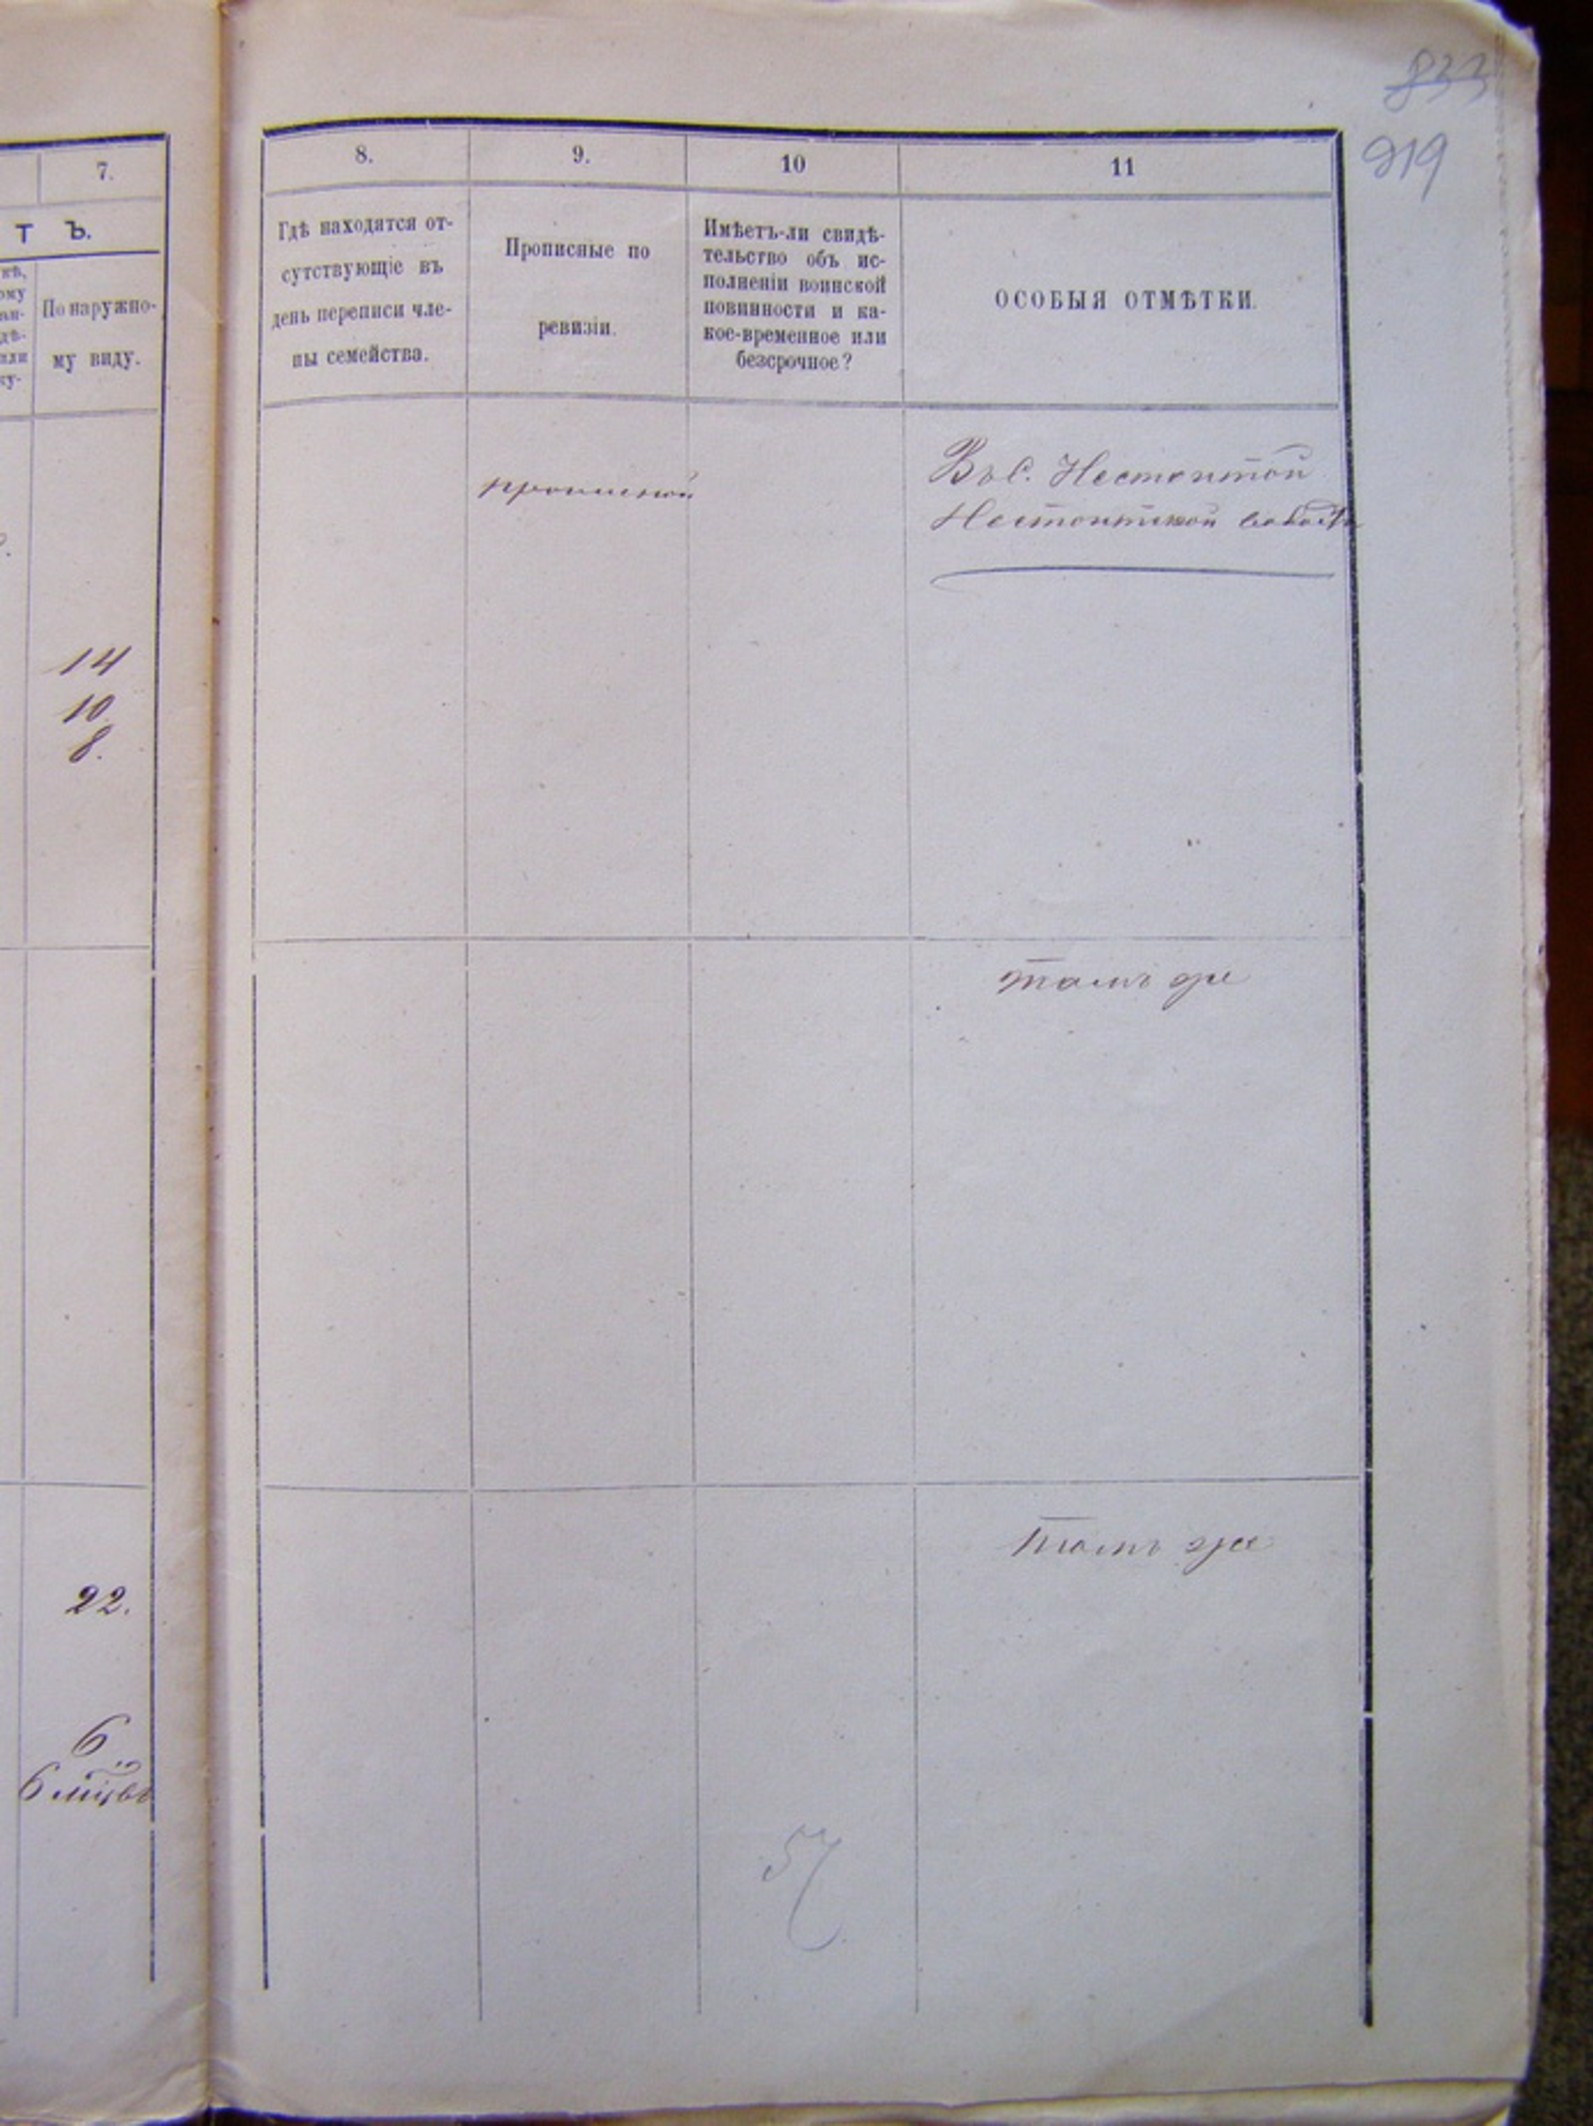 833
919
7.
Т Ъ.
По наружно-
му виду.
14
10
8.
22.
6
6
8.
9.
10
11
Гдѣ находятся от-
сутствующіе въ
день переписи чле-
ны семейства.
Прописные по
ревизіи.
Имѣетъ-ли свидѣ-
тельство объ ис-
полненіи воинской
повинности и ка-
кое-временное или
безсрочное?
ОСОБЫЯ ОТМѢТКИ.
прописной
Въ С. Нестоитой
Нестоитской волости
тамъ же
тамъ же
57